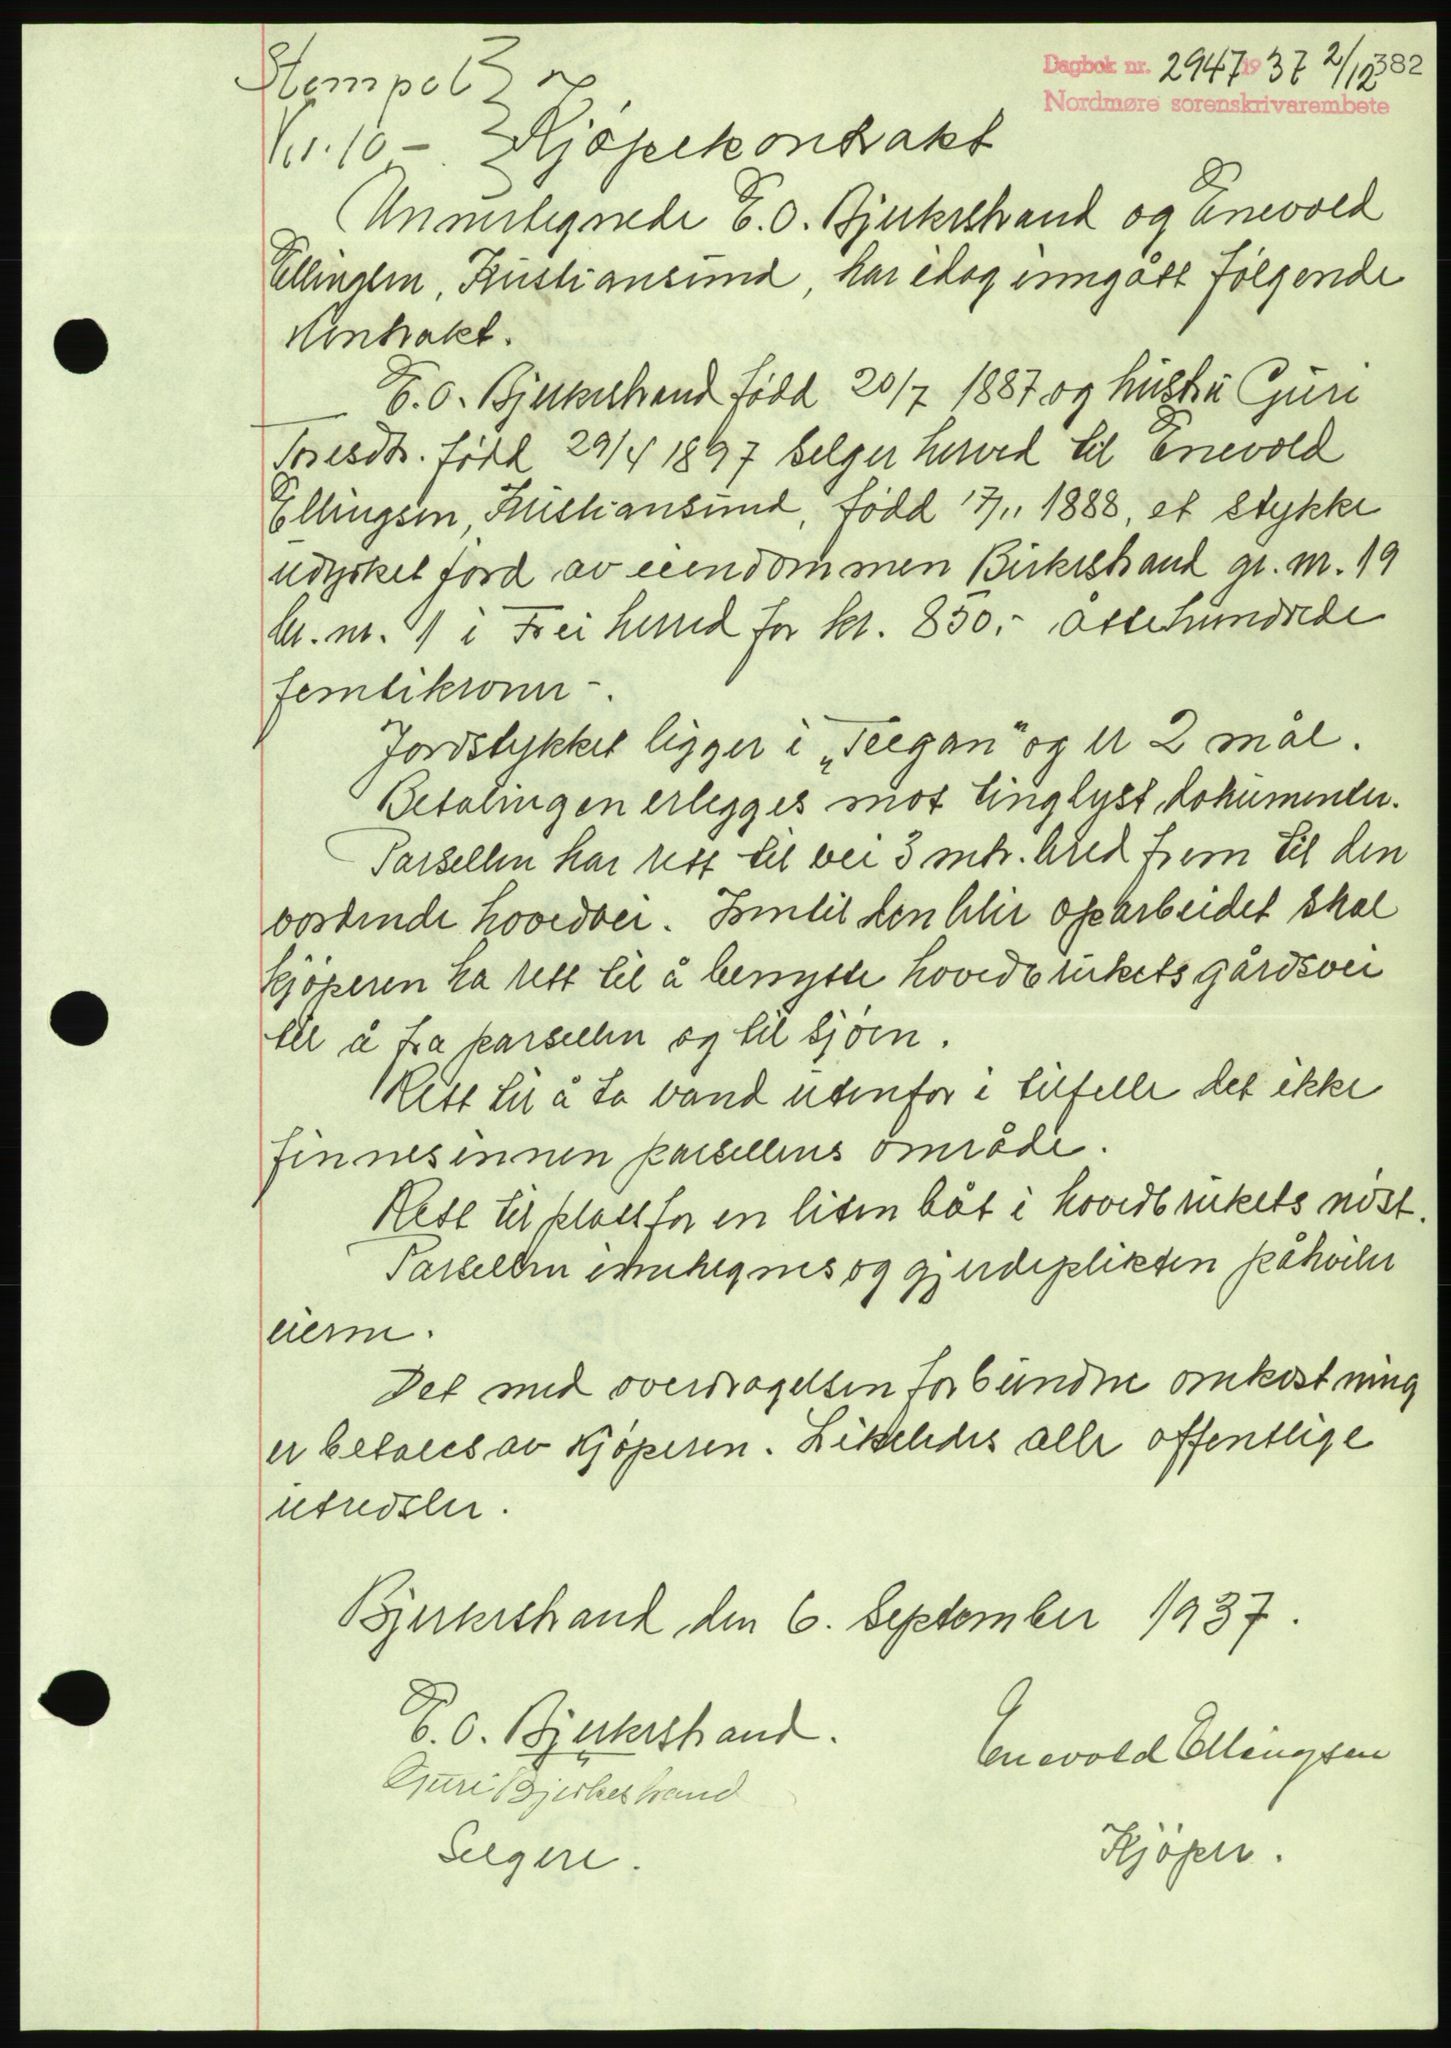 Dagbok nr. 2947 1937 2/12 382
Nordmøre sorenskrivarembete
Stempel
Kr. 10,-
Kjøpekontrakt
Unnertegnede E.O. Bjerkestrand og Enevold
Ellingsen, Kristiansund, har idag inngått følgende
kontrakt.
E.O. Bjerkestrand født 20/7 1887 og hustru Guri
Toresdtr. født 29/4 1897 selger herved til Enevold
Ellingsen, Kristiansund, født 17/11 1888, et stykke
udyrket jord av eiendommen Birkestrand gr. nr. 19
br. nr. 1 i Frei herred for kr. 850,- åttehundrede
femtikroner -.
Jordstykket ligger i „Teegan" og er 2 mål.
Betalingen erlegges mot tinglyst dokumenter.
Parsellen har rett til vei 3 mtr. bred frem til den
vordende hovedvei. Inntil den blir oparbeidet skal
kjøperen ha rett til å benytte hovedbrukets gårdsvei
til å fra parsellen og til sjøen.
Rett til å ta vand utenfor i tilfelle det ikke
finnes innen parsellens område.
Rett til plass for en liten båt i hovedbrukets nøst.
Parsellen innhegnes og gjerdeplikten påhviler
eieren.
Det med overdragelsen forbundne omkostning
er betales av kjøperen. Likeledes alle offentlige
utredsler.
Bjerkestrand den 6. September 1937.
E.O. Bjerkestrand.
Enevold Ellingsen
Guri Bjerkestrand
Selgere.
Kjøper.